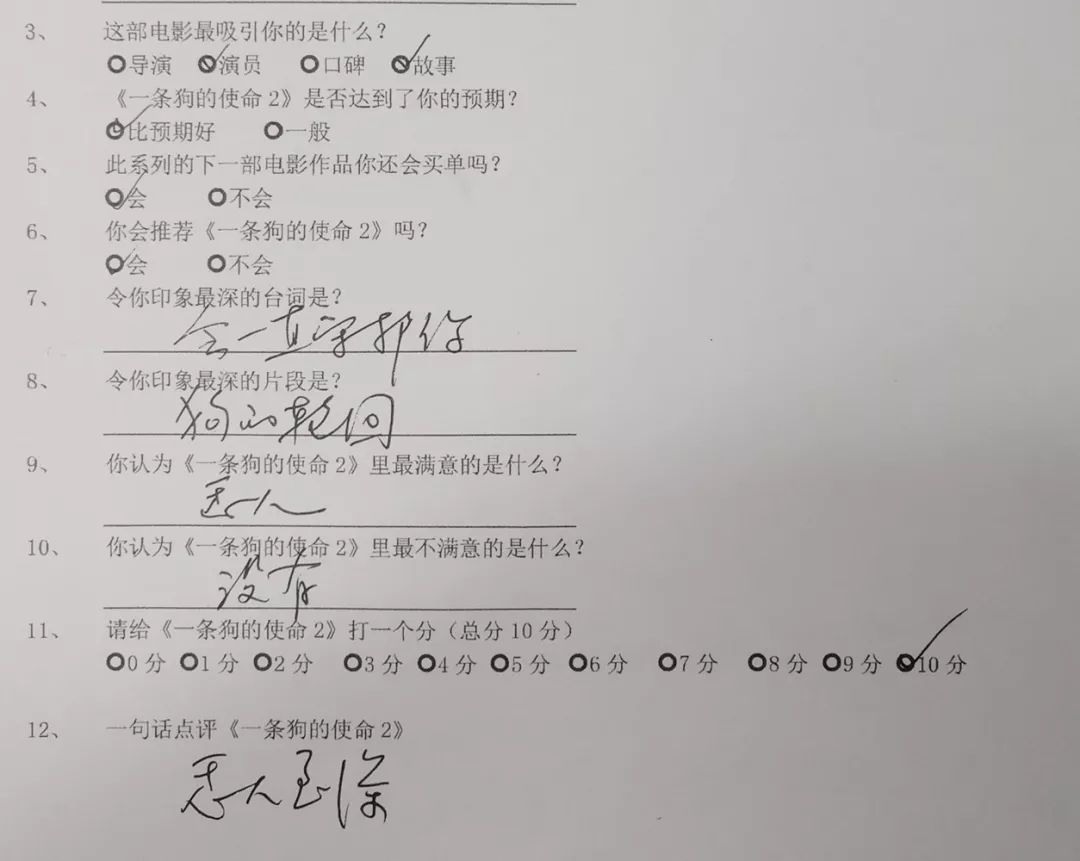 3、 这部电影最吸引你的是什么？
导演 演员 口碑 故事
4、 《一条狗的使命2》是否达到了你的预期？
比预期好 一般
5、 此系列的下一部电影作品你还会买单吗？
会 不会
6、 你会推荐《一条狗的使命2》吗？
会 不会
7、 令你印象最深的台词是？
会一直守护你
8、 令你印象最深的片段是？
狗的轮回
9、 你认为《一条狗的使命2》里最满意的是什么？
感人
10、 你认为《一条狗的使命2》里最不满意的是什么？
没有
11、 请给《一条狗的使命2》打一个分（总分10分）
0分 1分 2分 3分 4分 5分 6分 7分 8分 9分 10分
12、 一句话点评《一条狗的使命2》
感人至深